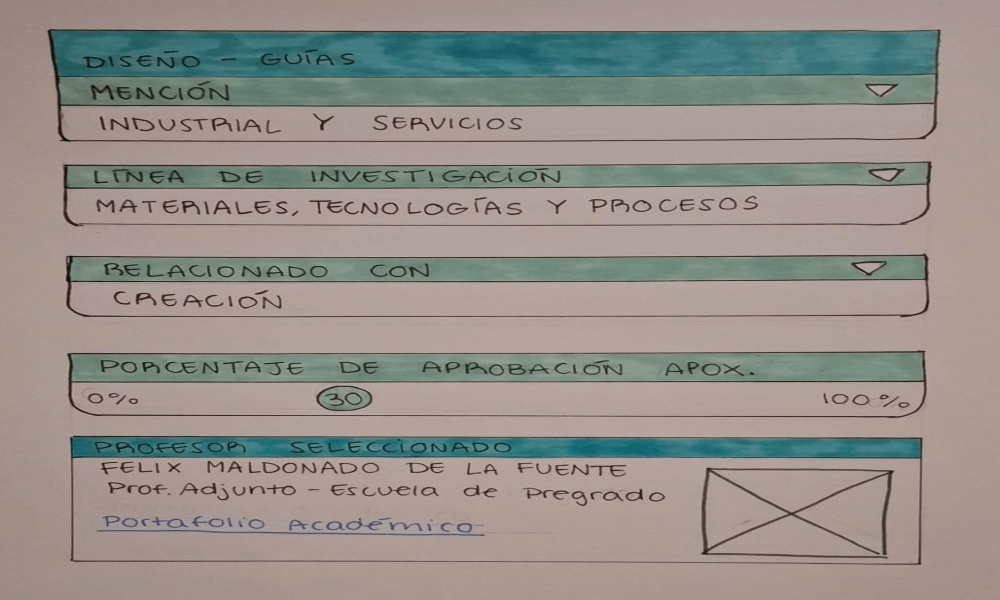 DISEÑO - GUÍAS
MENCIÓN
INDUSTRIAL Y SERVICIOS
LÍNEA DE INVESTIGACIÓN
MATERIALES, TECNOLOGÍAS Y PROCESOS
RELACIONADO CON
CREACIÓN
PORCENTAJE DE APROBACIÓN APOX.
0% 30 100%
PROFESOR SELECCIONADO
FELIX MALDONADO DE LA FUENTE
Prof. Adjunto - Escuela de Pregrado
Portafolio Académico